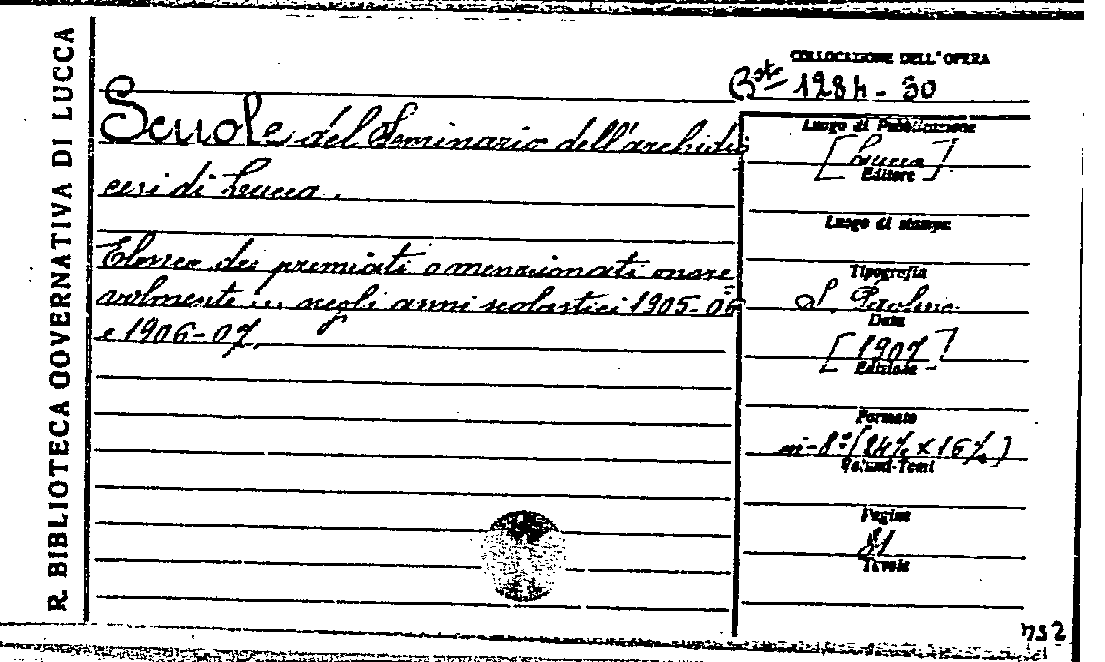 R. BIBLIOTECA GOVERNATIVA DI LUCCA
COLLOCAZIONE DELL'OPERA
Bta 1284-30
Scuole del Seminario dell'archidio
cesi di Lucca.
Elenco dei premiati o menzionati onore
volmente ... negli anni scolastici 1905-06
e 1906-07.
Luogo di Pubblicazione
[Lucca]
Editore
Luogo di stampa
Tipografia
S. Paolino
Data
[1907]
Edizione
Formato
in-8° (24½ x 16½)
Volumi-Tomi
Pagine
31
Tavole
752